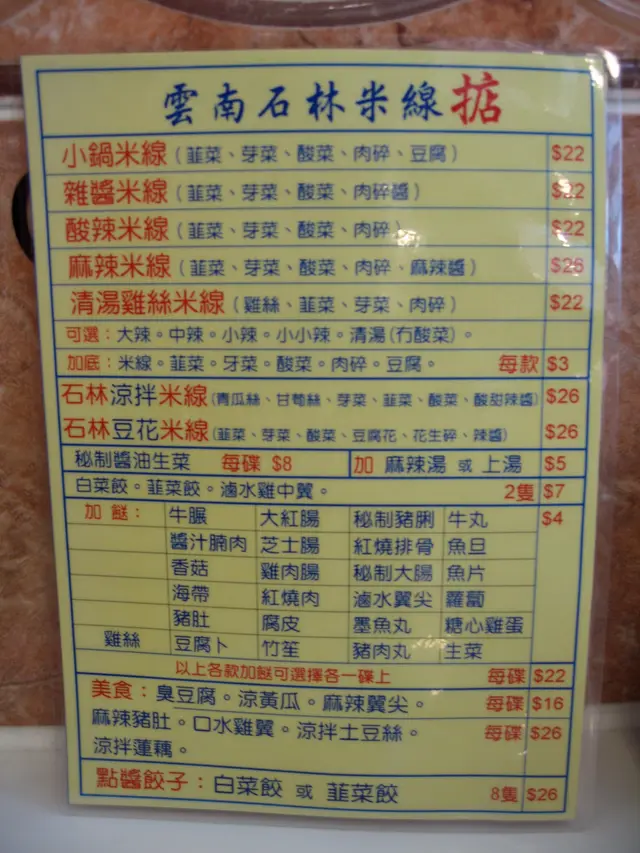 雲南石林米線掂
小鍋米線(韮菜、芽菜、酸菜、肉碎、豆腐) $22
雜醬米線(韮菜、芽菜、酸菜、肉碎醬) $22
酸辣米線(韮菜、芽菜、酸菜、肉碎) $22
麻辣米線(韮菜、芽菜、酸菜、肉碎、麻辣醬) $26
清湯雞絲米線(雞絲、韮菜、芽菜、肉碎) $22
可選:大辣。中辣。小辣。小小辣。清湯(冇酸菜)。
加底:米線。韮菜。牙菜。酸菜。肉碎。豆腐。 每款 $3
石林涼拌米線(青瓜絲、甘荀絲、芽菜、韮菜、酸菜、酸甜辣醬) $26
石林豆花米線(韮菜、芽菜、酸菜、豆腐花、花生碎、辣醬) $26
秘制醬油生菜 每碟 $8 加 麻辣湯 或 上湯 $5
白菜餃。韮菜餃。滷水雞中翼。 2隻 $7
加餸: 牛𦟌 大紅腸 秘制豬脷 牛丸 $4
醬汁腩肉 芝士腸 紅燒排骨 魚旦
香菇 雞肉腸 秘制大腸 魚片
海帶 紅燒肉 滷水翼尖 蘿蔔
豬肚 腐皮 墨魚丸 糖心雞蛋
雞絲 豆腐卜 竹笙 豬肉丸 生菜
以上各款加餸可選擇各一碟上 每碟 $22
美食:臭豆腐。涼黃瓜。麻辣翼尖。 每碟 $16
麻辣豬肚。口水雞翼。涼拌土豆絲。 每碟 $26
涼拌蓮藕。
點醬餃子:白菜餃 或 韮菜餃 8隻 $26